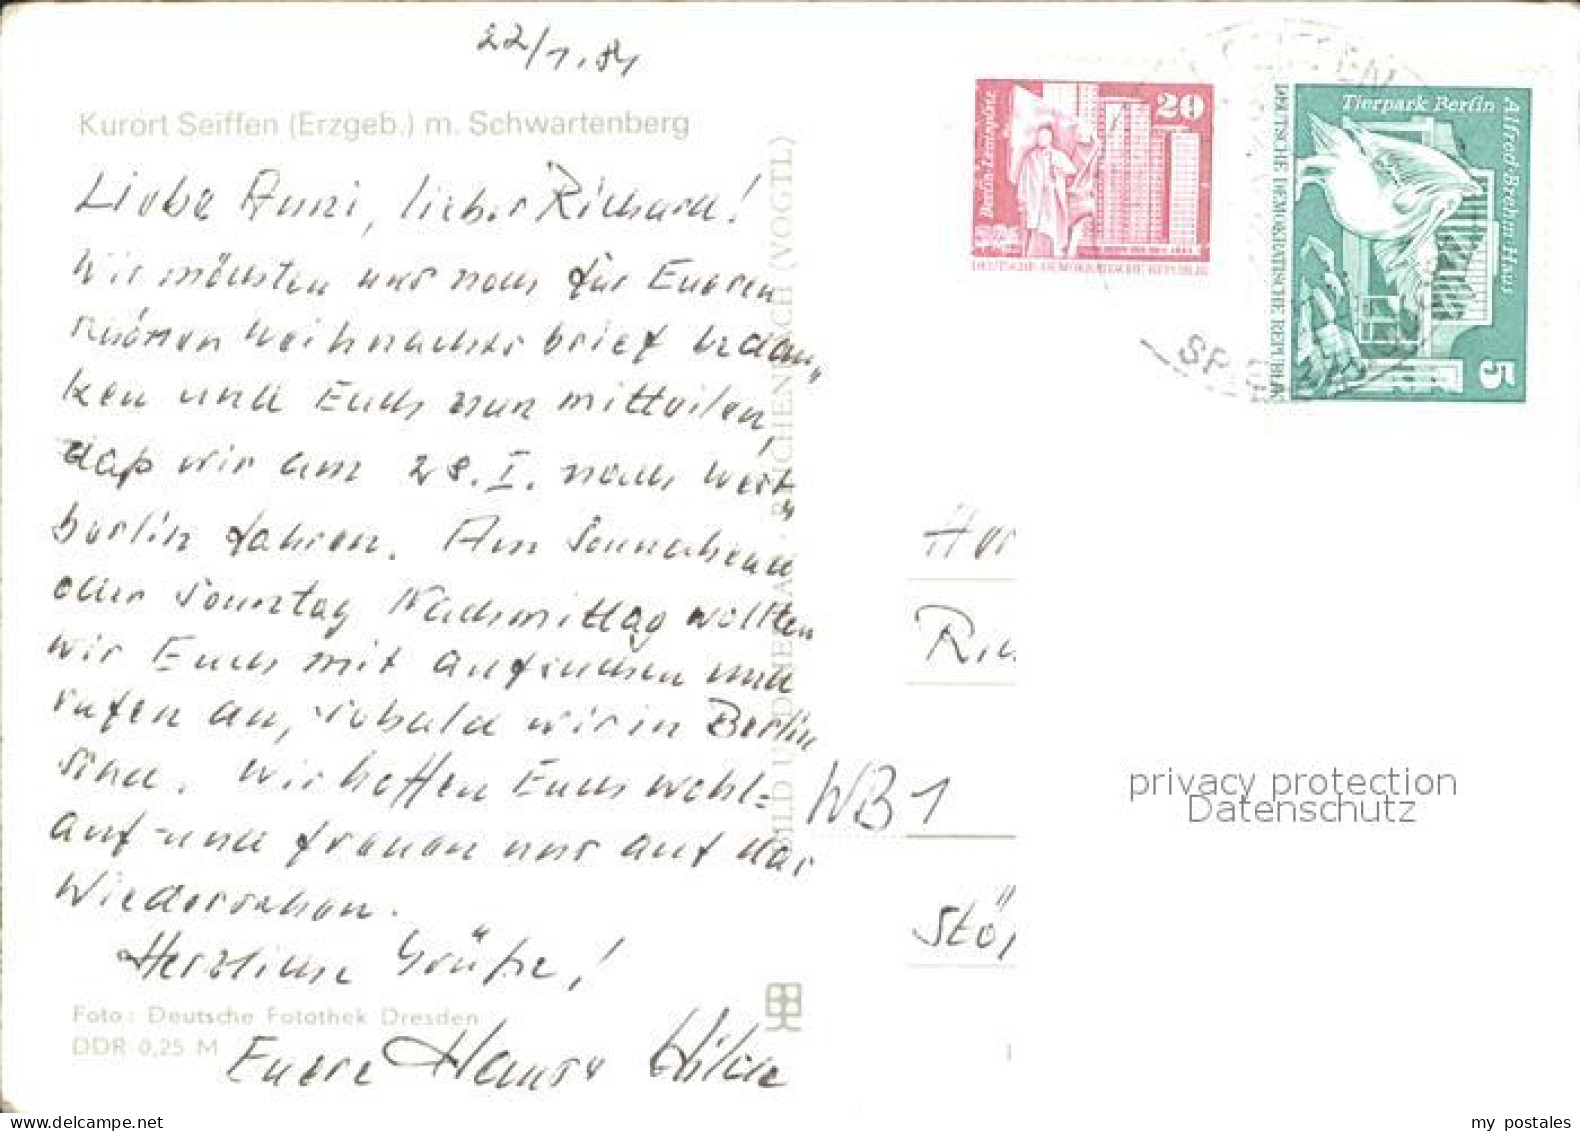 22/1.84
Kurort Seiffen (Erzgeb.) m. Schwartenberg
Liebe Anni, lieber Richard!
Wir möchten uns noch für Eueren
schönen Weihnachtsbrief bedan„
ken und Euch nun mitteilen,
daß wir am 28.I. nach West„
berlin fahren. Am Sonnabend
oder Sonntag Nachmittag wollten
wir Euch mit aufsuchen und
rufen an, sobald wir in Berlin
sind. Wir hoffen Euch wohl=
auf und freuen uns auf das
Wiedersehen.
Herzliche Grüße!
Euere Hans u Hilde
Foto: Deutsche Fotothek Dresden
DDR 0,25 M
BILD UND HEIMAT REICHENBACH (VOGTL)
20
Berlin-Leninplatz
DEUTSCHE DEMOKRATISCHE REPUBLIK
Tierpark Berlin
Alfred-Brehm-Haus
DEUTSCHE DEMOKRATISCHE REPUBLIK
5
SP
Her
Ric
WB 1
Stö
privacy protection
Datenschutz
my postales